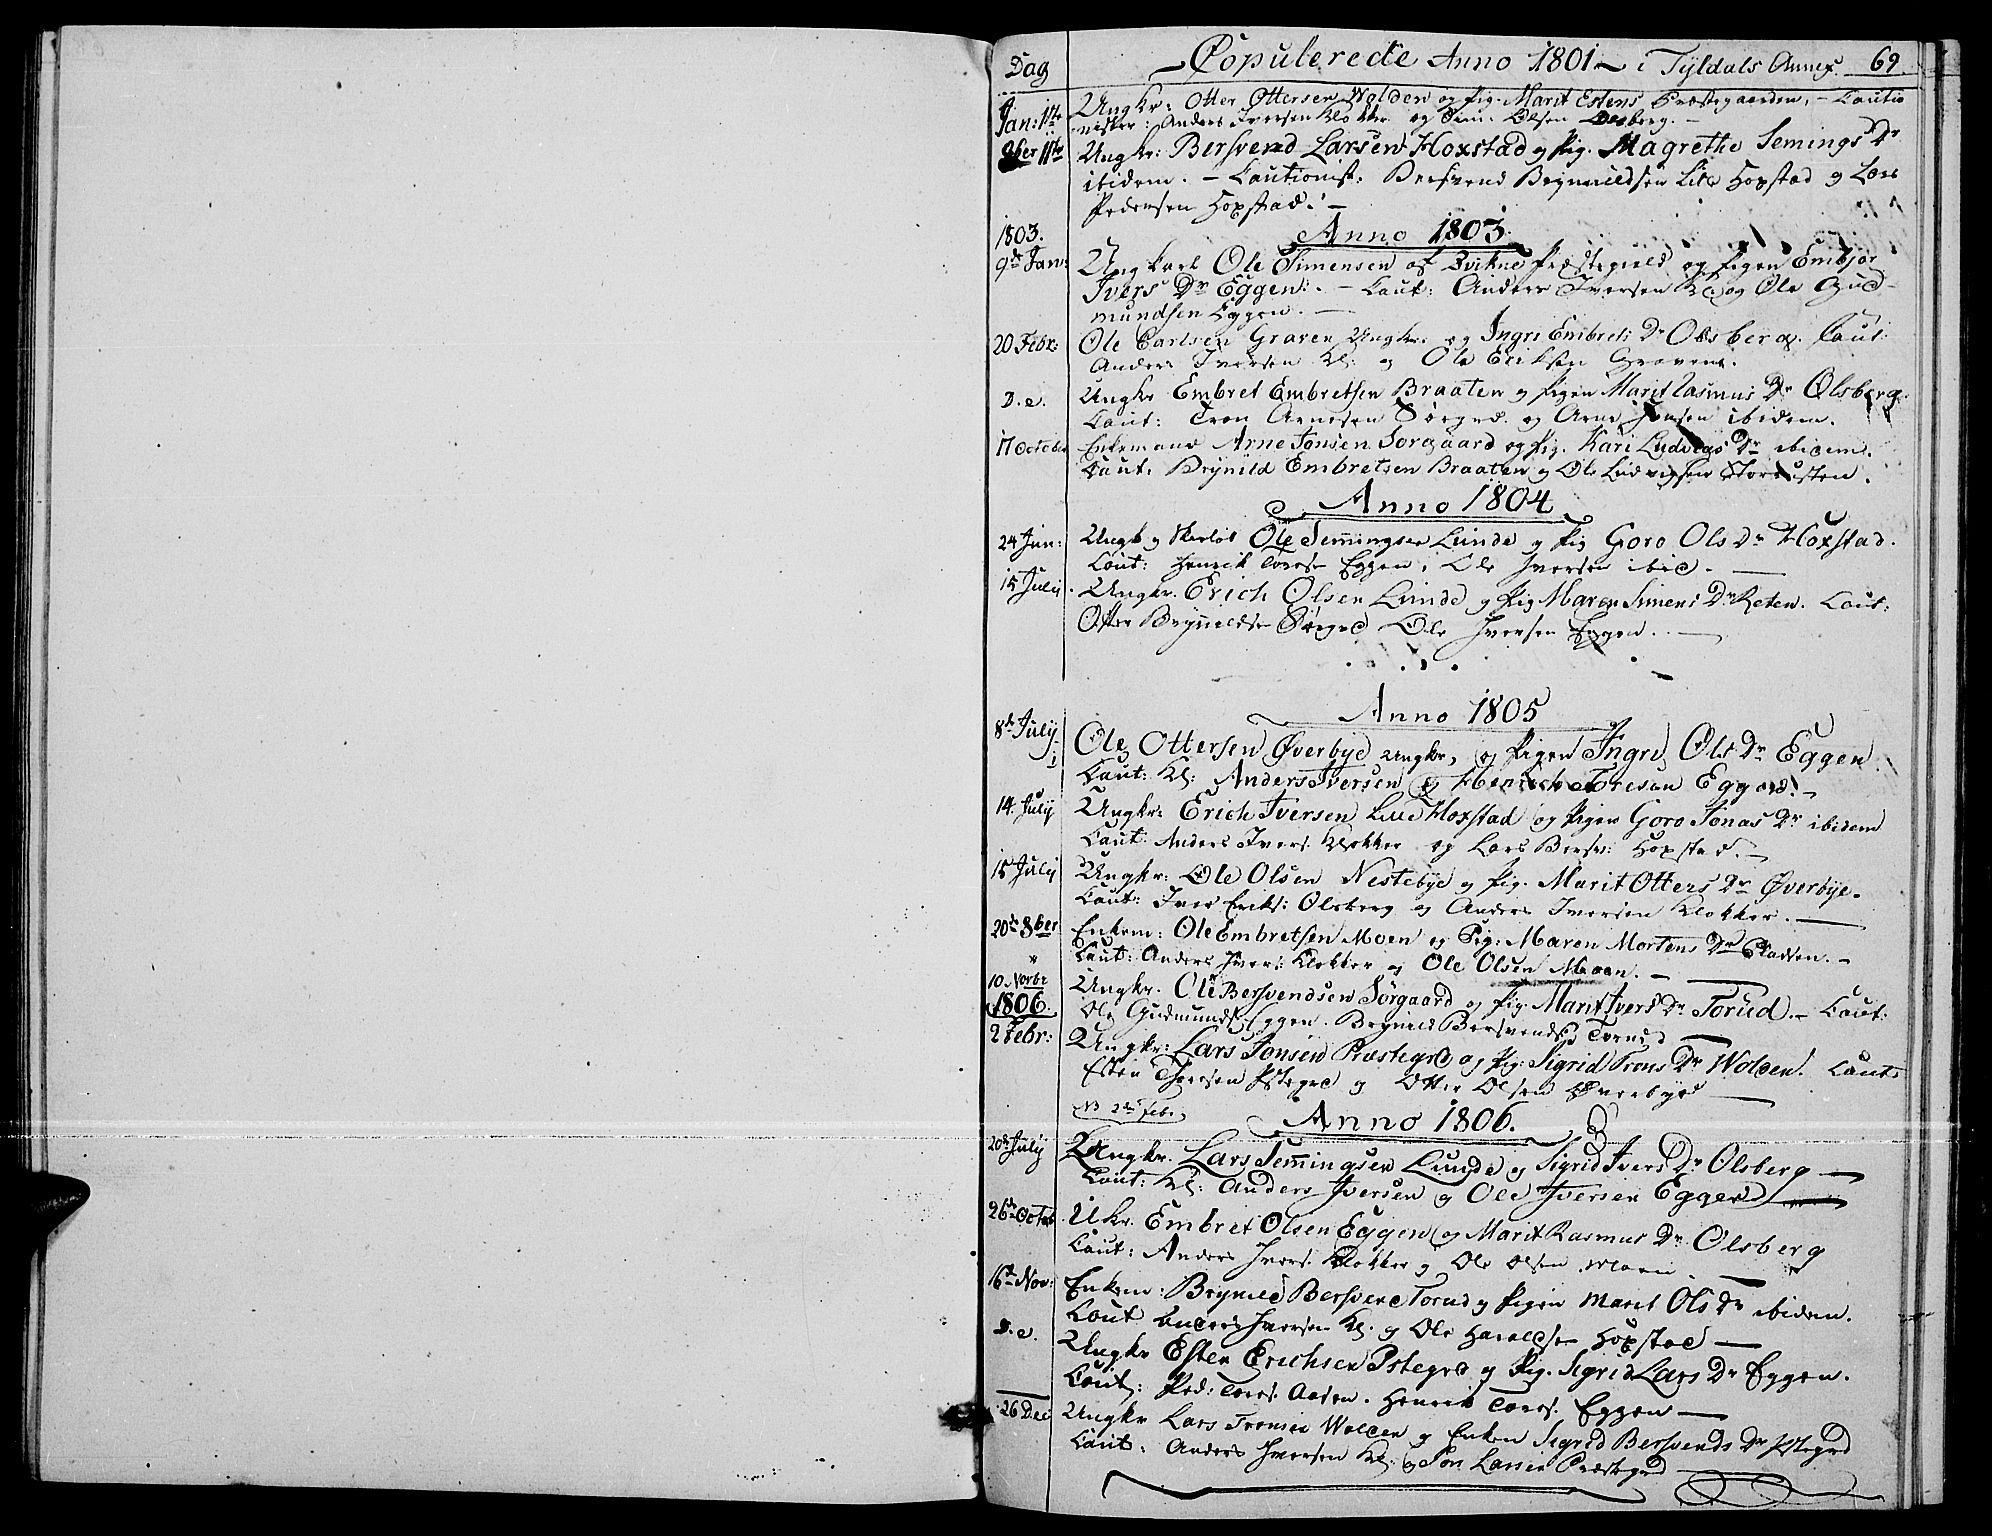 Dag Copulerede Anno 1801 i Tyldals Annex 69
Jan: 1ste Ungkr: Otter Ottersen Wolden og Pig. Marit Estens Præstegaarden, - Cautio
nister: Anders Iversen Klokker og Sim. Olsen Olsberg. -
8ber 11te Ungkr: Bersvend Larsen Hoxstad og Pig. Magrethe Semings Dr
ibidem. - Cautionist: Bersvend Brynildsen Lile Hoxstad og Lars
Pedersen Hoxstad. -
1803. Anno 1803.
9de Jan: Ungkarl Ole Simensen af Qvikne Præstegield og Pigen Embjør
Ivers Dr Eggen. - Caut: Anders Iversen Kl. og Ole Gud-
mundsen Eggen. -
20 Febr: Ole Carlsen Graven Ungkr. og Ingri Embrets Dr Olsberg. Caut:
Anders Iversen Kl: og Ole Eriksen Gravene.
D. e. Ungkr Embret Embretsen Braaten og Pigen Marit Rasmus Dr Olsberg.
Caut: Tron Arnesen Sørgrd. og Arne Jonsen ibidem.
17 October Enkemand Arne Jonsen Sørgaard og Pig. Kari Ludvigs Dr ibidem.
Caut: Brynild Embretsen Braaten og Ole Ludvigsen
Anno 1804
24 Jun: Ungk og Ole Semingsen Lunde og Pig Goro Ols Dr Hoxstad.
Caut: Henrik Tores. Eggen, Ole Iversen ibid. -
15 July. Ungkr. Erich Olsen Lunde og Pig Maren Simens Dr Reten. Caut:
Otter Brynilds. Sørgrd Ole Iversen Eggen. -
Anno 1805
8de July Ole Ottersen Øverbye Ungkr, og Pigen Ingri Ols Dr Eggen.
Caut: Kl: Anders Iversen og Henrich Toresen Eggen. -
14. July Ungkr: Erich Iversen Lille Hoxstad og Pigen Goro Jonas Dr ibidem
Caut: Anders Ivers. Klokker og Lars Bersv: Hoxstad. -
15 July Ungkr: Ole Olsen Nestebye og Pig. Marit Otters Dr Øverbye.
Caut: Iver Eriks: Olsberg og Anders Iversen Klokker. -
20de 8ber Enkem: Ole Embretsen Moen og Pig: Maren Mortens Dr Pladsen. -
Caut: Anders Ivers: Klokker og Ole Olsen Moen. -
10. Novbr Ungkr. Ole Bersvendsen Sørgaard og Pig. Marit Ivers Dr Torud. - Caut:
1806. Ole Gudmunds. Eggen. Brynild Bersvends. Torud
2 Febr: Ungkr: Lars Jonsen Præstegrd og Pig: Sigrid Trons Dr Wolden. Caut:
Esten Pstegrd og Otter Olsen Øverbye
NB 2den Febr. Anno 1806.
20de July Ungkr. Lars Semingsen Lunde og Sigrid Ivers Dr Olsberg -
Caut: Kl: Anders Iversen og Ole Iversen Eggen
26de Octob. Ukr. Embret Olsen Eggen og Marit Rasmus Dr Olsberg
Caut: Anders Ivers. Klokker og Ole Olsen Moen -
16de Nov: Enkem: Brynild Bersvend Torud og Pigen Marit Ols Dr ibidem.
Caut Anders Iversen Kl. og Ole Haralds. Hoxstad -
D. e. Ungkr Esten Erichsen Pstegrd og Pig. Sigrid Lars Dr Eggen.
Caut: Ped: Tores. Aasen. Henrik Tores. Eggen -
26 Dec Ungkr Lars Tronsen Wolden og Enken Sigrid Bersvends Dr Pstegrd
Caut: Anders Iversen Kl: og Jon Larsen Præstegrd